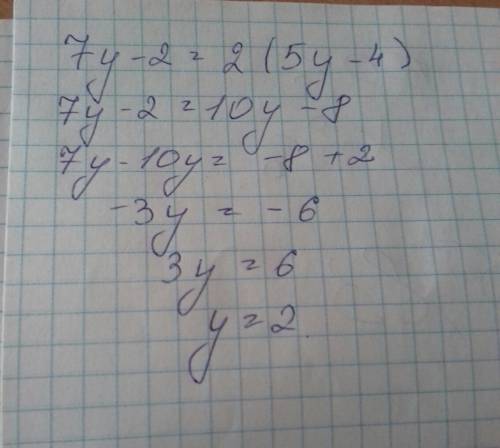 7y - 2 = 2 (5y - 4)
7y - 2 = 10y - 8
7y - 10y = -8 + 2
-3y = -6
3y = 6
y = 2.